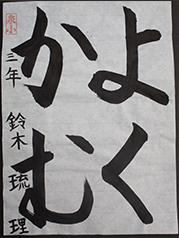 よく
かむ
三年 鈴木琉理